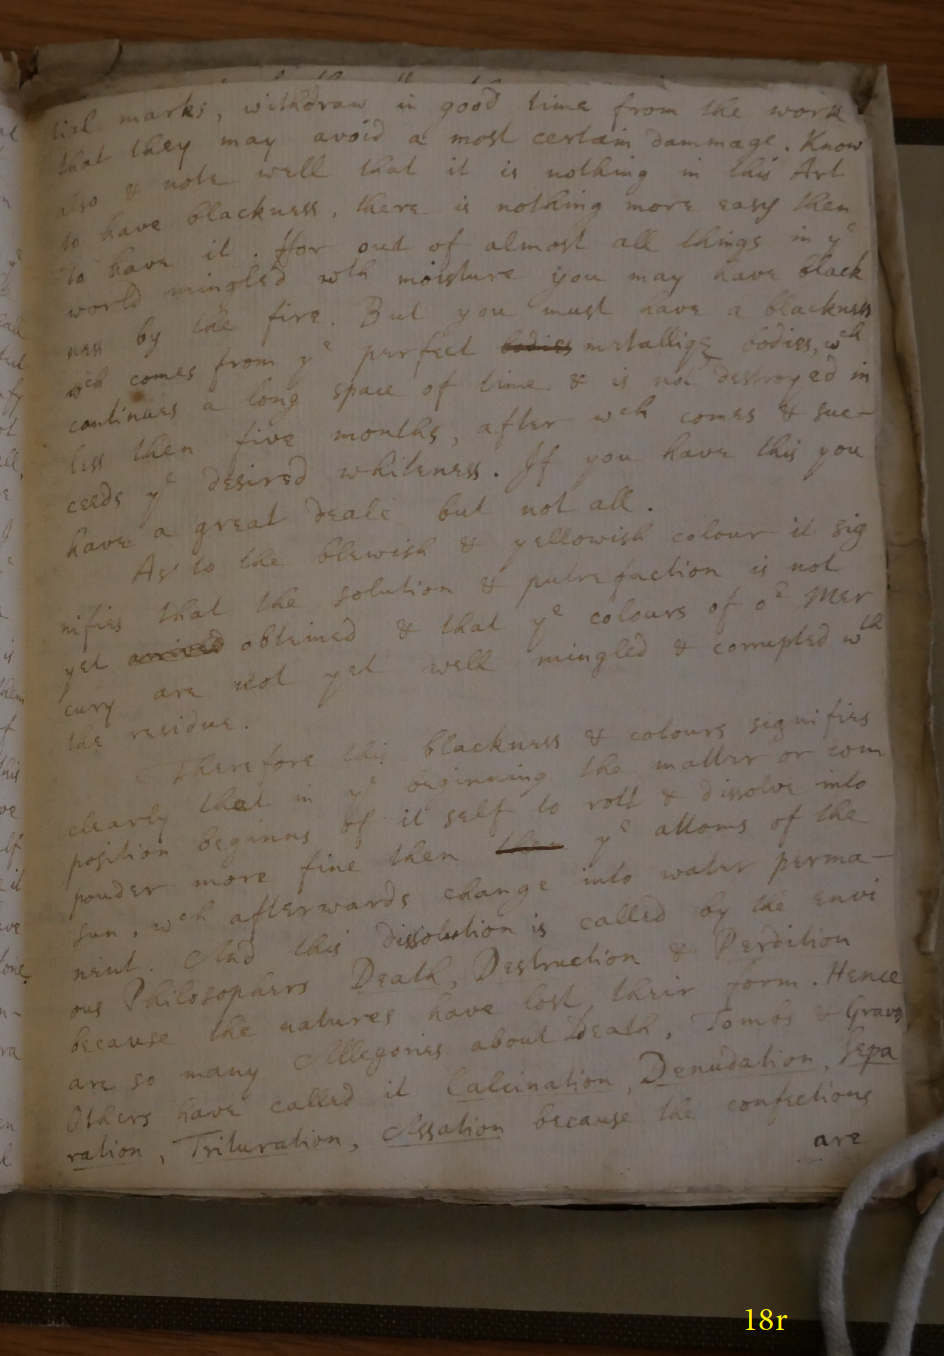 tial marks, withdraw in good time from the work
that they may avoid a most certain dammage. Know
also & note well that it is nothing in this Art
to have blackness, there is nothing more easy then
to have it. ffor out of almost all things in yᵉ
world mingled wth moisture you may have black
ness by the fire. But you must have a blackness
wch comes from yᵉ perfect bodies metallique bodies, wch
continues a long space of time & is not destroyed in
less then five months, after wch comes & suc-
ceeds yᵉ desired whiteness. If you have this you
have a great deale but not all.
As to the blewish & yellowish colour it sig
nifies that the solution & putrefaction is not
yet arrived obteined & that yᵉ colours of oʳ Mer
cury are not yet well mingled & corrupted wth
the residue.
Therefore this blackness & colours signifies
clearly that in yᵉ beginning the matter or com
position beginns of it self to rott & dissolve into
pouder more fine then then yᵉ attoms of the
Sun, wch afterwards change into water perma-
nent. And this dissolution is called by the envi
ous Philosophers Death, Destruction & Perdition
because the natures have lost their form. Hence
are so many Allegories about Death, Tombs & Graves
Others have called it Calcination, Denudation, Sepa
ration, Trituration, Assation because the confections
are
18r